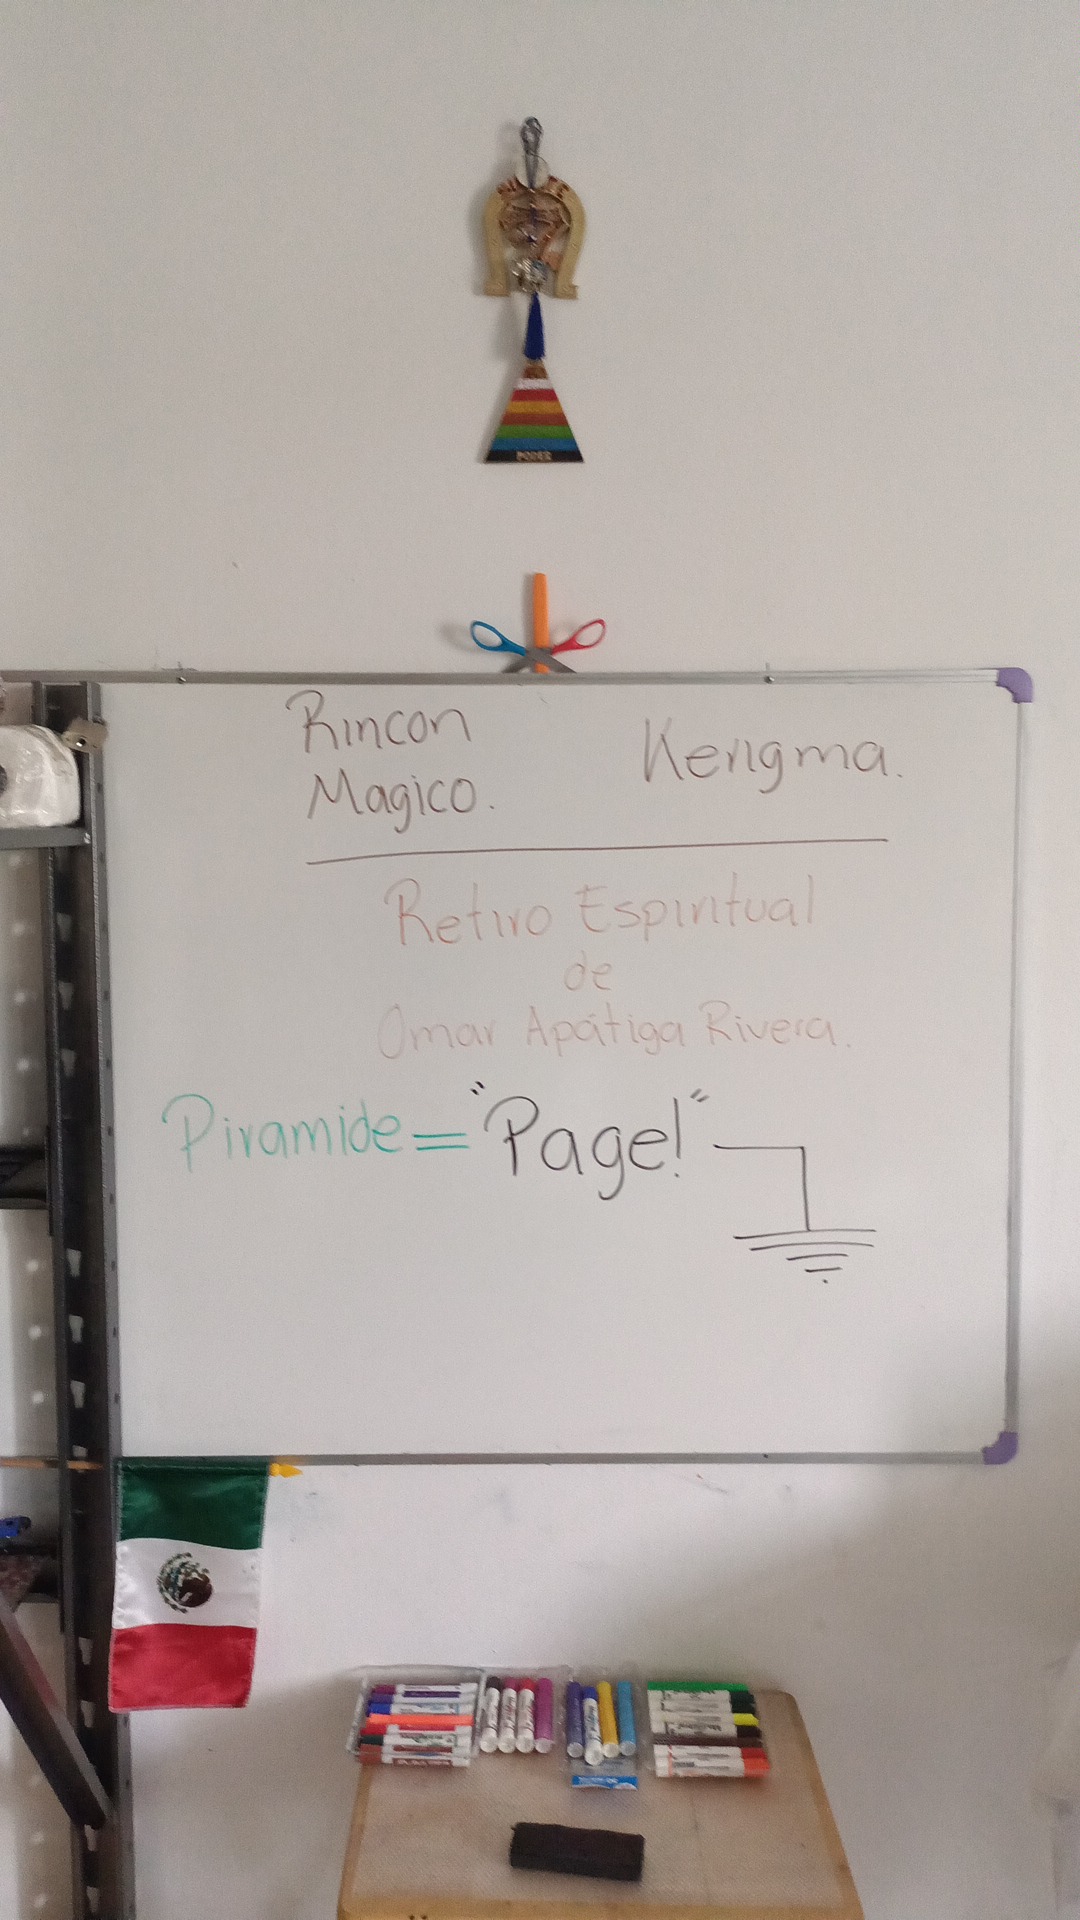 PODER
Rincon
Magico.
Kerigma.
Retiro Espiritual
de
Omar Apátiga Rivera.
Piramide = "Page!"